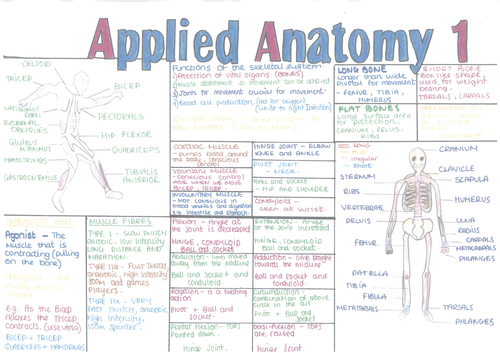 Applied Anatomy 1
DELTOID
TRICEP
BICEP
PECTORALS
HIP FLEXOR
QUADRICEPS
TIBIALIS
ANTERIOR
LATISSIMUS
DORSI
EXTERNAL
OBLIQUES
GLUTEUS
MAXIMUS
HAMSTRINGS
GASTROCNEMIUS
Functions of the skeletal system:
1) Protection of vital organs (BONES)
2) Muscle attachment so movement can be achieved
3) Joints for movement crucial for movement.
4) Blood cell production (red for oxygen)
(white to fight infection)
LONG BONE
longer than wide
pivotal for movement
- FEMUR, TIBIA,
HUMERUS
SHORT BONE
Box like shape,
used for weight
bearing.
TARSALS, CARPALS
FLAT BONES
Large surface area
for protection.
CRANIUM, PELVIS,
RIBS
CARDIAC MUSCLE
- pumps blood around
the body,
VOLUNTARY MUSCLE
- conscious control
move when we move
BICEP, TRICEP
INVOLUNTARY MUSCLE
- Not conscious in
blood vessels and digestion
i.e. intestine and stomach
HINGE JOINT - ELBOW
KNEE and ANKLE
PIVOT JOINT
- NECK
Ball and socket
- HIP AND SHOULDER
Condyloid -
seen at wrist.
Agonist - The
muscle that is
contracting (pulling
on the bone)
eg. As the Bicep
relaxes the Tricep
contracts. (vise versa)
BICEP + TRICEP
QUADRICEPS + HAMSTRINGS
MUSCLE FIBRES
TYPE I - SLOW TWITCH
aerobic, low intensity
long distance AND
MARATHON
TYPE IIa - FAST TWITCH,
anaerobic, high intensity
800m and games
players
TYPE IIx - VERY
FAST TWITCH, anaerobic
high intensity,
100m sprinter.
Flexion - Angle at
the joint is decreased
HINGE, CONDYLOID
Ball and socket
EXTENSION - Angle
at the joint increased
HINGE, CONDYLOID
Ball and socket.
Abduction - limb moved
away from the midline
Ball and socket and
condyloid.
Adduction - limb brought
towards the midline
Ball and socket and
condyloid.
Rotation - is a twisting
action
Pivot + Ball and
socket
Circumduction -
combination of above
circle in the air.
Ball and
socket
Plantar Flexion - TOES
pointed down.
Hinge Joint
Dorsi-flexion - TOES
are raised
Hinge Joint
long
flat
irregular
short
STERNUM
RIBS
VERTEBRAE
PELVIS
FEMUR
PATELLA
TIBIA
FIBULA
METATARSALS
CRANIUM
CLAVICLE
SCAPULA
HUMERUS
ULNA
RADIUS
CARPALS
METACARPALS
PHLANGES
TARSALS
PHLANGES